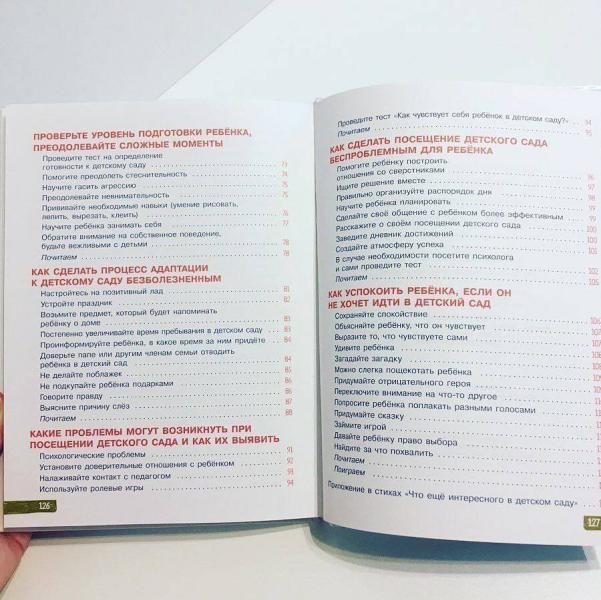 ПРОВЕРЬТЕ УРОВЕНЬ ПОДГОТОВКИ РЕБЁНКА,
ПРЕОДОЛЕВАЙТЕ СЛОЖНЫЕ МОМЕНТЫ
Проведите тест на определение
готовности к детскому саду 73
Помогите преодолеть стеснительность 74
Научите гасить агрессию 75
Преодолевайте невнимательность 75
Прививайте необходимые навыки (умение рисовать,
лепить, вырезать, клеить) 76
Научите ребёнка занимать себя 77
Обратите внимание на собственное поведение,
будьте вежливыми с детьми 78
Почитаем 78
КАК СДЕЛАТЬ ПРОЦЕСС АДАПТАЦИИ
К ДЕТСКОМУ САДУ БЕЗБОЛЕЗНЕННЫМ
Настройтесь на позитивный лад 81
Устройте праздник 82
Возьмите предмет, который будет напоминать
ребёнку о доме 83
Постепенно увеличивайте время пребывания в детском саду 83
Проинформируйте ребёнка, в какое время за ним придёте 84
Доверьте папе или другим членам семьи отводить
ребёнка в детский сад 84
Не делайте поблажек 85
Не подкупайте ребёнка подарками 86
Говорите правду 87
Выясните причину слёз 87
Почитаем 88
КАКИЕ ПРОБЛЕМЫ МОГУТ ВОЗНИКНУТЬ ПРИ
ПОСЕЩЕНИИ ДЕТСКОГО САДА И КАК ИХ ВЫЯВИТЬ
Психологические проблемы 91
Установите доверительные отношения с ребёнком 92
Налаживайте контакт с педагогом 93
Используйте ролевые игры 94
126
Проведите тест «Как чувствует себя ребёнок в детском саду?» 94
Почитаем 95
КАК СДЕЛАТЬ ПОСЕЩЕНИЕ ДЕТСКОГО САДА
БЕСПРОБЛЕМНЫМ ДЛЯ РЕБЁНКА
Помогите ребёнку построить
отношения со сверстниками 96
Ищите решение вместе 96
Правильно организуйте распорядок дня 97
Научите ребёнка планировать 98
Сделайте своё общение с ребёнком более эффективным 99
Расскажите о своём посещении детского сада 99
Заведите дневник достижений 100
Создайте атмосферу успеха 100
В случае необходимости посетите психолога 101
и сами проведите тест 102
Почитаем 105
КАК УСПОКОИТЬ РЕБЁНКА, ЕСЛИ ОН
НЕ ХОЧЕТ ИДТИ В ДЕТСКИЙ САД
Сохраняйте спокойствие 106
Объясняйте ребёнку, что он чувствует 107
Выразите то, что чувствуете сами
Удивите ребёнка
Загадайте загадку
Можно слегка пощекотать ребёнка
Придумайте отрицательного героя
Переключите внимание на что-то другое
Попросите ребёнка поплакать разными голосами
Придумайте сказку
Займите игрой
Давайте ребёнку право выбора
Найдите за что похвалить
Почитаем
Поиграем
Приложение в стихах «Что ещё интересного в детском саду»
127